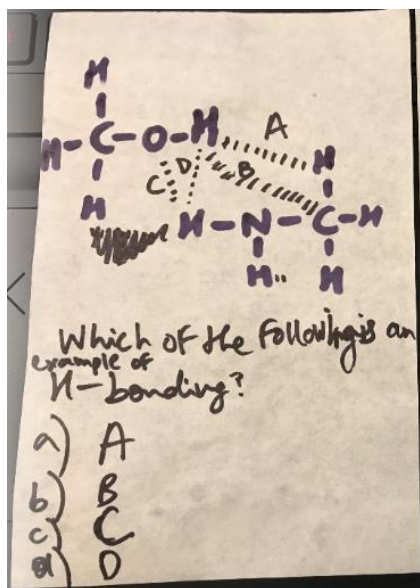 H
H-C-O-H A
D B H
C
H H-N-C-H
H.. H
Which of the following is an
example of
H-bonding?
a) A
b) B
c) C
d) D